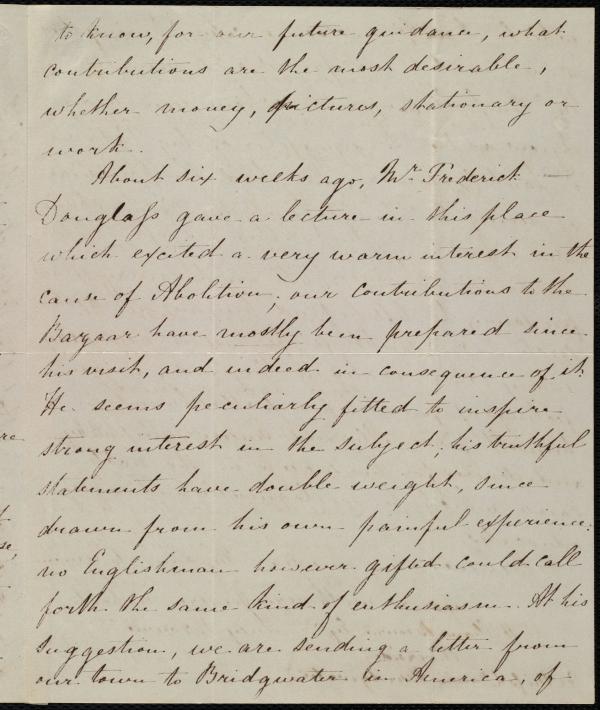 to know, for our future guidance, what
contributions are the most desirable,
whether money, pictures, stationary or
work.
About six weeks ago, Mr. Frederick
Douglass gave a lecture in this place
which excited a very warm interest in the
cause of Abolition; our contributions to the
Bazaar have mostly been prepared since
his visit, and indeed in consequence of it.
He seems peculiarly fitted to inspire
strong interest in the subject; his truthful
statements have double weight, since
drawn from his own painful experience:
no Englishman however gifted could call
forth the same kind of enthusiasm. At his
suggestion, we are sending a letter from
our town to Bridgwater in America, of